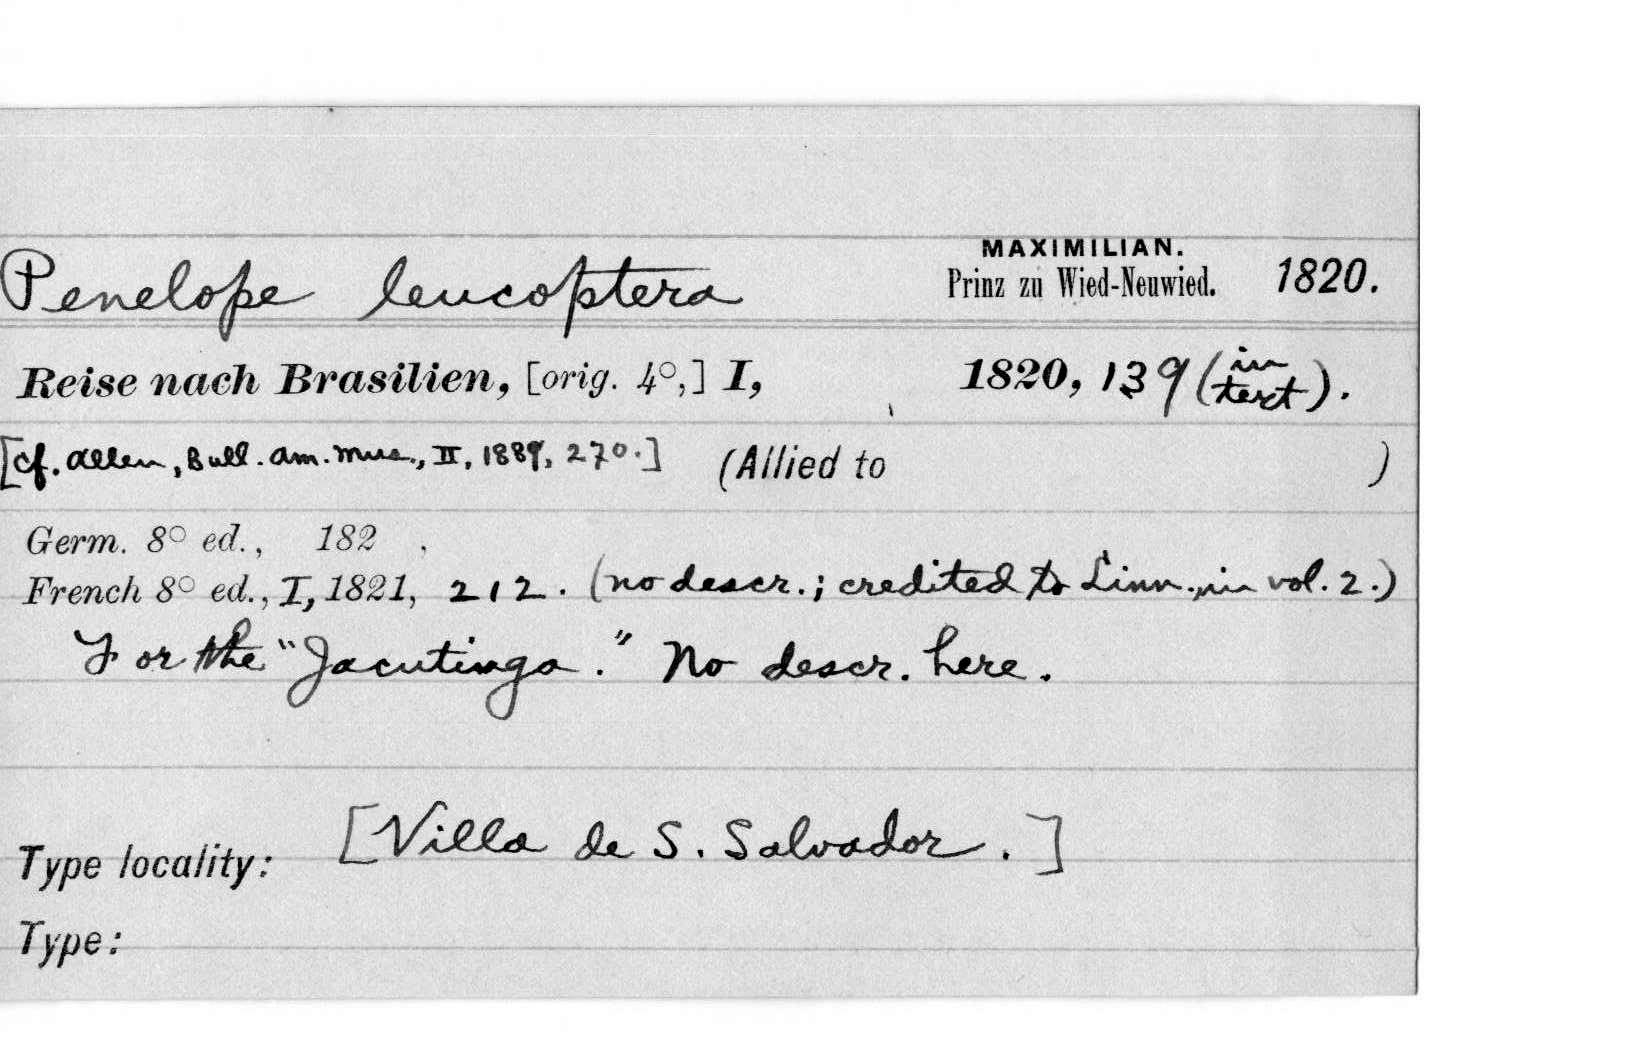 Penelope leucoptera MAXIMILIAN. Prinz zu Wied-Neuwied. 1820.
Reise nach Brasilien, [orig. 4°,] I, 1820, 139 (in text).
[cf. Allen, Bull. Am. Mus., II, 1889, 270.] (Allied to )
Germ. 8° ed., 182 .
French 8° ed., I, 1821, 212. (no descr.; credited to Linn., in vol. 2.)
For the "Jacutinga." No descr. here.
Type locality: [Villa de S. Salvador.]
Type: